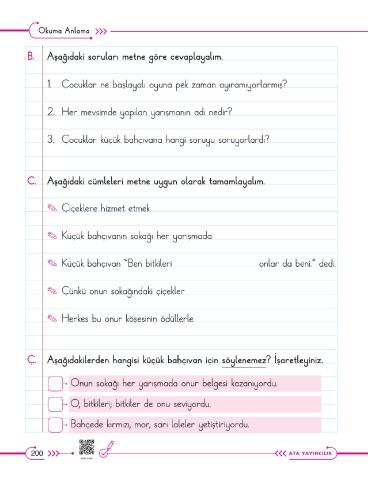 Okuma Anlama
B. Aşağıdaki soruları metne göre cevaplayalım.
1. Çocuklar ne başlayalı oyuna pek zaman ayıramıyorlarmış?
2. Her mevsimde yapılan yarışmanın adı nedir?
3. Çocuklar küçük bahçıvana hangi soruyu soruyorlardı?
C. Aşağıdaki cümleleri metne uygun olarak tamamlayalım.
Çiçeklere hizmet etmek
Küçük bahçıvanın sokağı her yarışmada
Küçük bahçıvan “Ben bitkileri onlar da beni.” dedi.
Çünkü onun sokağındaki çiçekler
Herkes bu onur köşesinin ödüllerle
Ç. Aşağıdakilerden hangisi küçük bahçıvan için söylenemez? İşaretleyiniz.
Onun sokağı her yarışmada onur belgesi kazanıyordu.
O, bitkileri; bitkiler de onu seviyordu.
Bahçede kırmızı, mor, sarı laleler yetiştiriyordu.
200
ATA YAYINCILIK